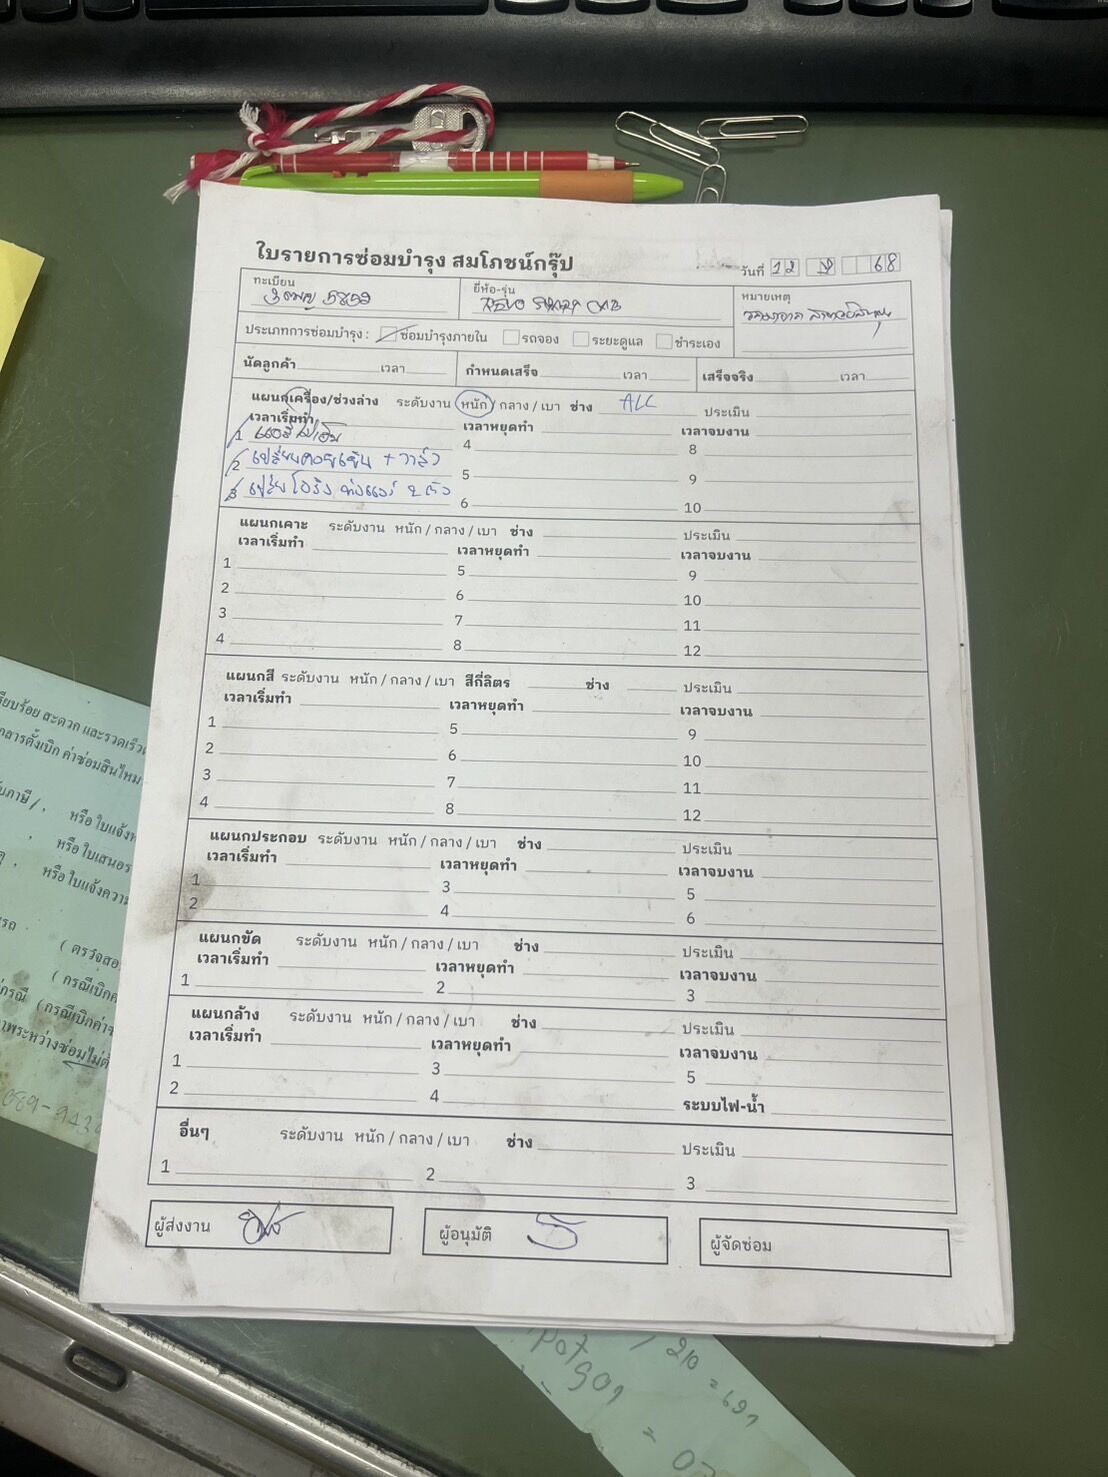 ใบรายการซ่อมบำรุง สมโภชน์กรุ๊ป
วันที่ 12 68
ทะเบียน 5852
ยี่ห้อ-รุ่น REVO SMART CAB
หมายเหตุ
ประเภทการซ่อมบำรุง : ซ่อมบำรุงภายใน รถจอง ระยะดูแล ชำระเอง
นัดลูกค้า เวลา กำหนดเสร็จ เวลา เสร็จจริง เวลา
แผนกเครื่อง/ช่วงล่าง ระดับงาน หนัก / กลาง / เบา ช่าง ALL ประเมิน
เวลาเริ่มทำ เวลาหยุดทำ เวลาจบงาน
1 แอร์ไม่เย็น 4 8
2 เปลี่ยนคอยเย็น + วาล์ว 5 9
3 เปลี่ยนโอริง ท่อแอร์ 2 ตัว 6 10
แผนกเคาะ ระดับงาน หนัก / กลาง / เบา ช่าง ประเมิน
เวลาเริ่มทำ เวลาหยุดทำ เวลาจบงาน
1 5 9
2 6 10
3 7 11
4 8 12
แผนกสี ระดับงาน หนัก / กลาง / เบา สีกี่ลิตร ช่าง ประเมิน
เวลาเริ่มทำ เวลาหยุดทำ เวลาจบงาน
1 5 9
2 6 10
3 7 11
4 8 12
แผนกประกอบ ระดับงาน หนัก / กลาง / เบา ช่าง ประเมิน
เวลาเริ่มทำ เวลาหยุดทำ เวลาจบงาน
1 3 5
2 4 6
แผนกขัด ระดับงาน หนัก / กลาง / เบา ช่าง ประเมิน
เวลาเริ่มทำ เวลาหยุดทำ เวลาจบงาน
1 2 3
แผนกล้าง ระดับงาน หนัก / กลาง / เบา ช่าง ประเมิน
เวลาเริ่มทำ เวลาหยุดทำ เวลาจบงาน
1 3 5
2 4 ระบบไฟ-น้ำ
อื่นๆ ระดับงาน หนัก / กลาง / เบา ช่าง ประเมิน
1 2 3
ผู้ส่งงาน ผู้อนุมัติ ผู้จัดซ่อม
รียบร้อย สะดวก และรวดเร็ว
กสารตั้งเบิก ค่าซ่อมสินไหม
หรือ ใบแจ้ง
หรือ ใบเสนอ
หรือ ใบแจ้งความ
( ตรวจสอ
( กรณีเบิก
กรณี (กรณีเบิกค่า
าพระหว่างซ่อมไม่
089-943
210 = 697